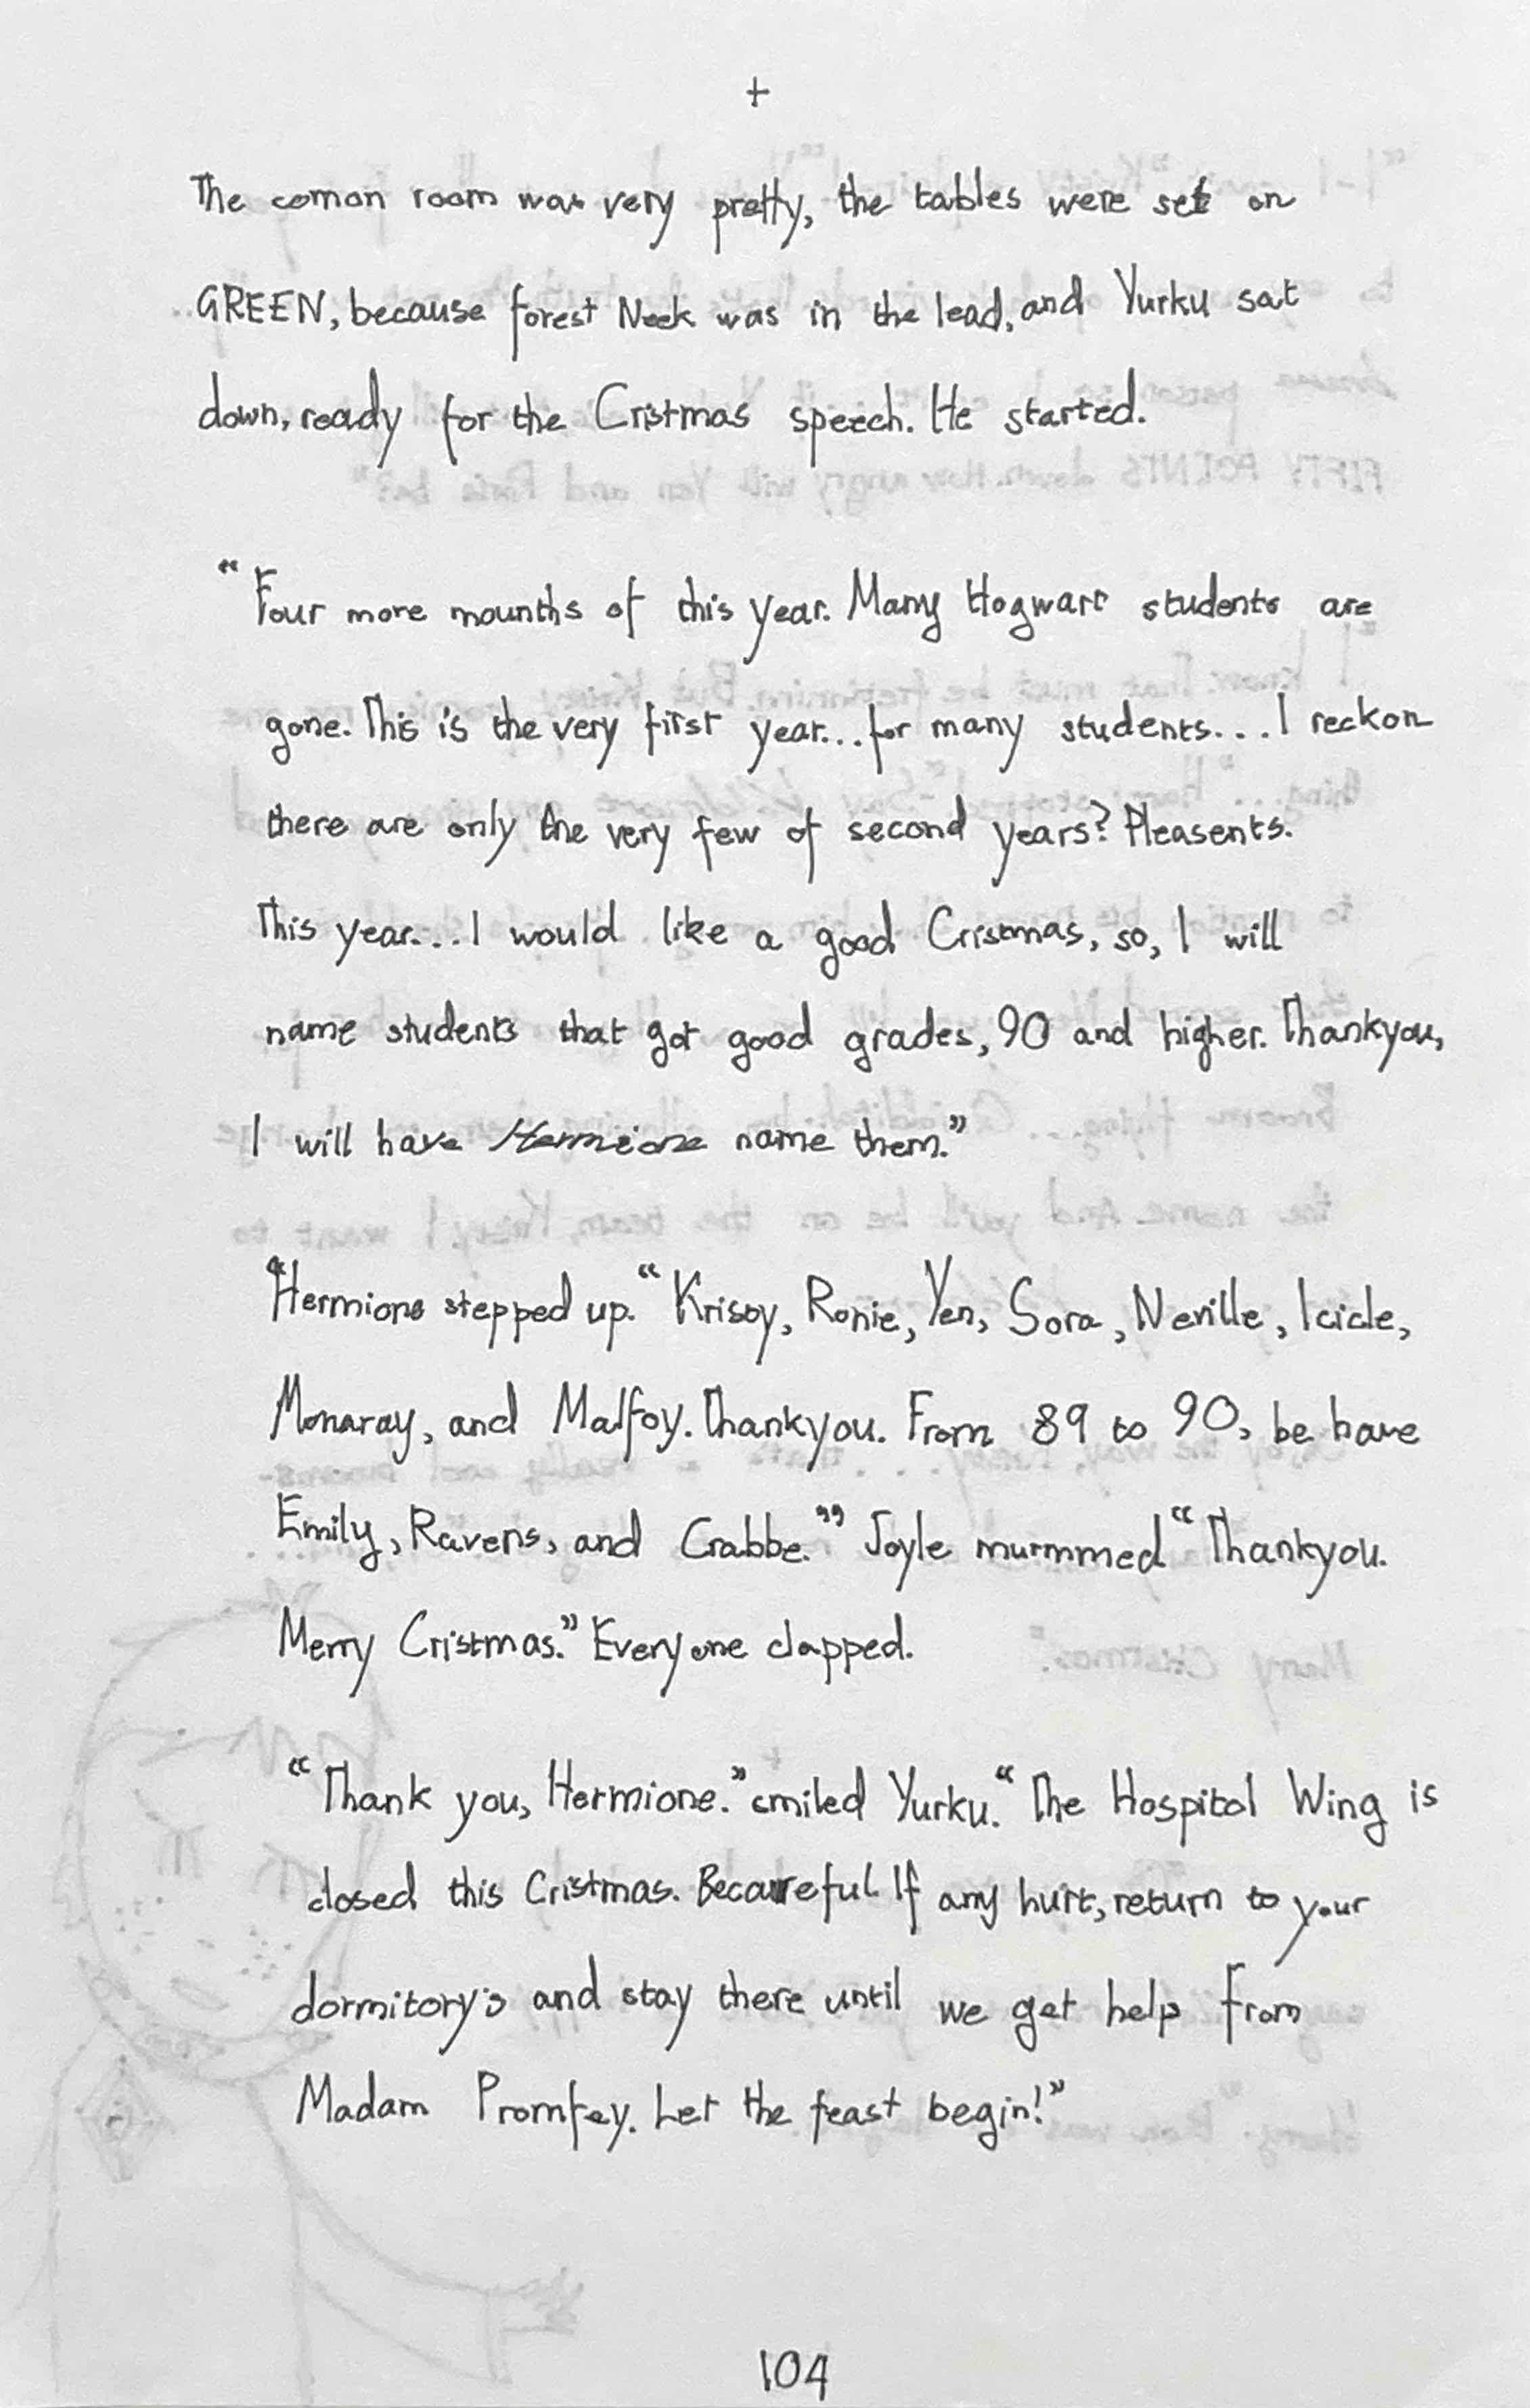 +
The comon room was very pretty, the tables were set on
GREEN, because forest Neek was in the lead, and Yurku sat
down, ready for the Cristmas speech. He started.
“Four more mounths of this year. Many Hogwart students are
gone. This is the very first year...for many students...I reckon
there are only the very few of second years? Pleasents.
This year...I would like a good Cristmas, so, I will
name students that got good grades, 90 and higher. Thankyou,
I will have Hermione name them.”
“Hermione stepped up. “Krissy, Ronie, Yen, Sora, Neville, Icicle,
Monaray, and Malfoy. Thankyou. From 89 to 90, be have
Emily, Ravens, and Crabbe.” Joyle murmmed “Thankyou.
Merry Cristmas.” Everyone clapped.
“Thank you, Hermione.” smiled Yurku. “The Hospital Wing is
closed this Cristmas. Becareful. If any hurt, return to your
dormitory's and stay there until we get help from
Madam Promfey. Let the feast begin!”
104